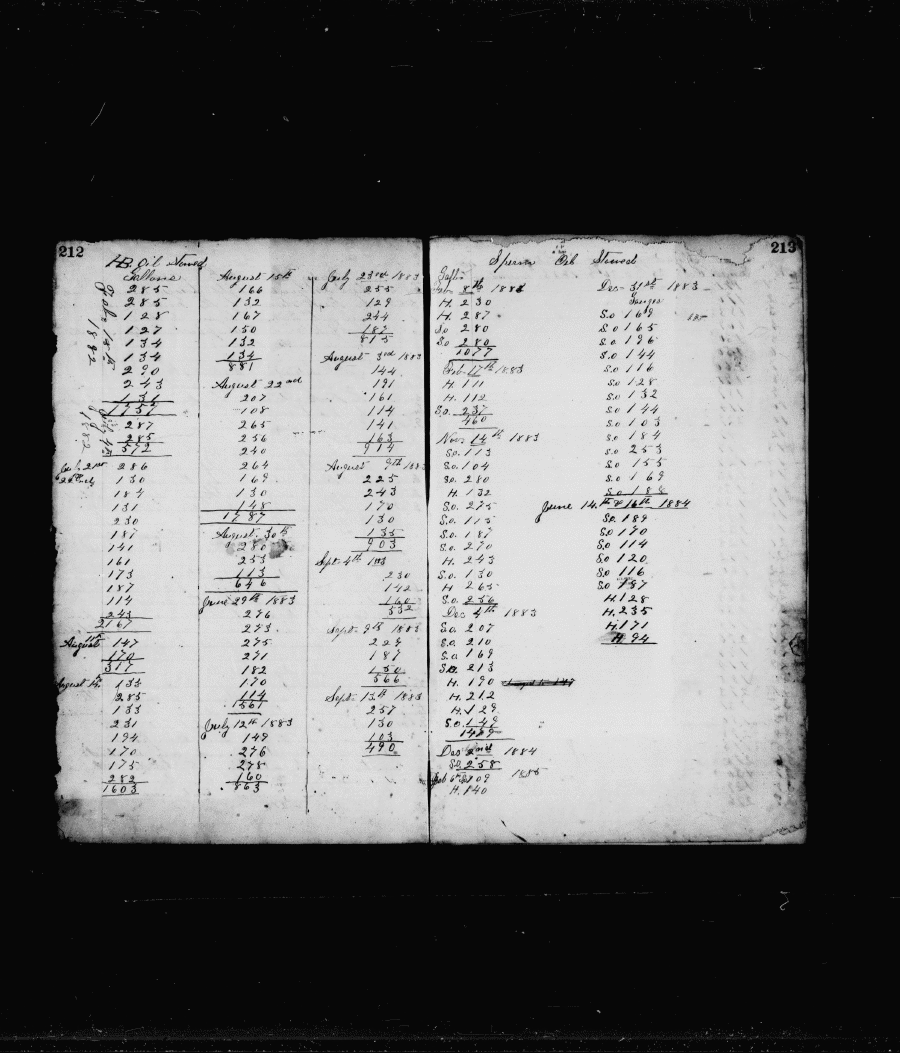 212
H.B. Oil stowed
Gallons
Feby 18th
1882
285
285
128
127
134
134
290
243
131
1757
July 4th
1882
287
285
572
July 21st
286
130
184
131
230
187
141
161
173
187
114
243
2167
August
147
170
317
August 14th
133
285
133
231
194
170
175
282
1603
August 15th
166
132
167
150
132
134
881
August 22nd
207
108
265
256
240
264
169
130
148
1787
August 30th
280
253
113
646
June 29th 1883
276
273
275
271
182
170
114
1561
July 12th 1883
149
276
278
160
863
July 23rd 1883
255
129
244
187
815
August 3rd 1883
144
191
161
114
141
163
914
August 9th 1883
225
243
170
130
135
903
Sept 4th 1883
230
142
160
532
Sept 9th 1883
229
187
150
566
Sept 13th 1883
257
130
103
490
213
Sperm Oil Stowed
8th 188
H. 230
H. 287
So 280
So 280
1077
17th 1883
H. 111
H. 112
S.o. 237
460
Novr 14th 1883
So. 113
So. 104
So. 280
H. 132
So. 275
So. 115
So. 187
So. 270
H. 243
S.o. 130
H 265
S.o. 256
Dec 4th 1883
S.o. 207
So. 210
S.o 169
So. 213
H. 190
H. 212
H. 129
S.o. 149
1429
Dec 2nd 1884
So. 258
Feb 6th So 109 1885
H. 140
Dec 31st 1883
Gauges
S.o 169
S.o 165
S.o 196
S.o 144
S.o 116
S.o 128
S.o 132
S.o 144
S.o 103
S.o 184
S.o 253
S.o 155
S.o 169
S.o 184
June 14th & 16th 1884
So. 189
So 170
So 114
S.o 120
So 116
So 157
H. 128
H. 235
H. 171
H. 94